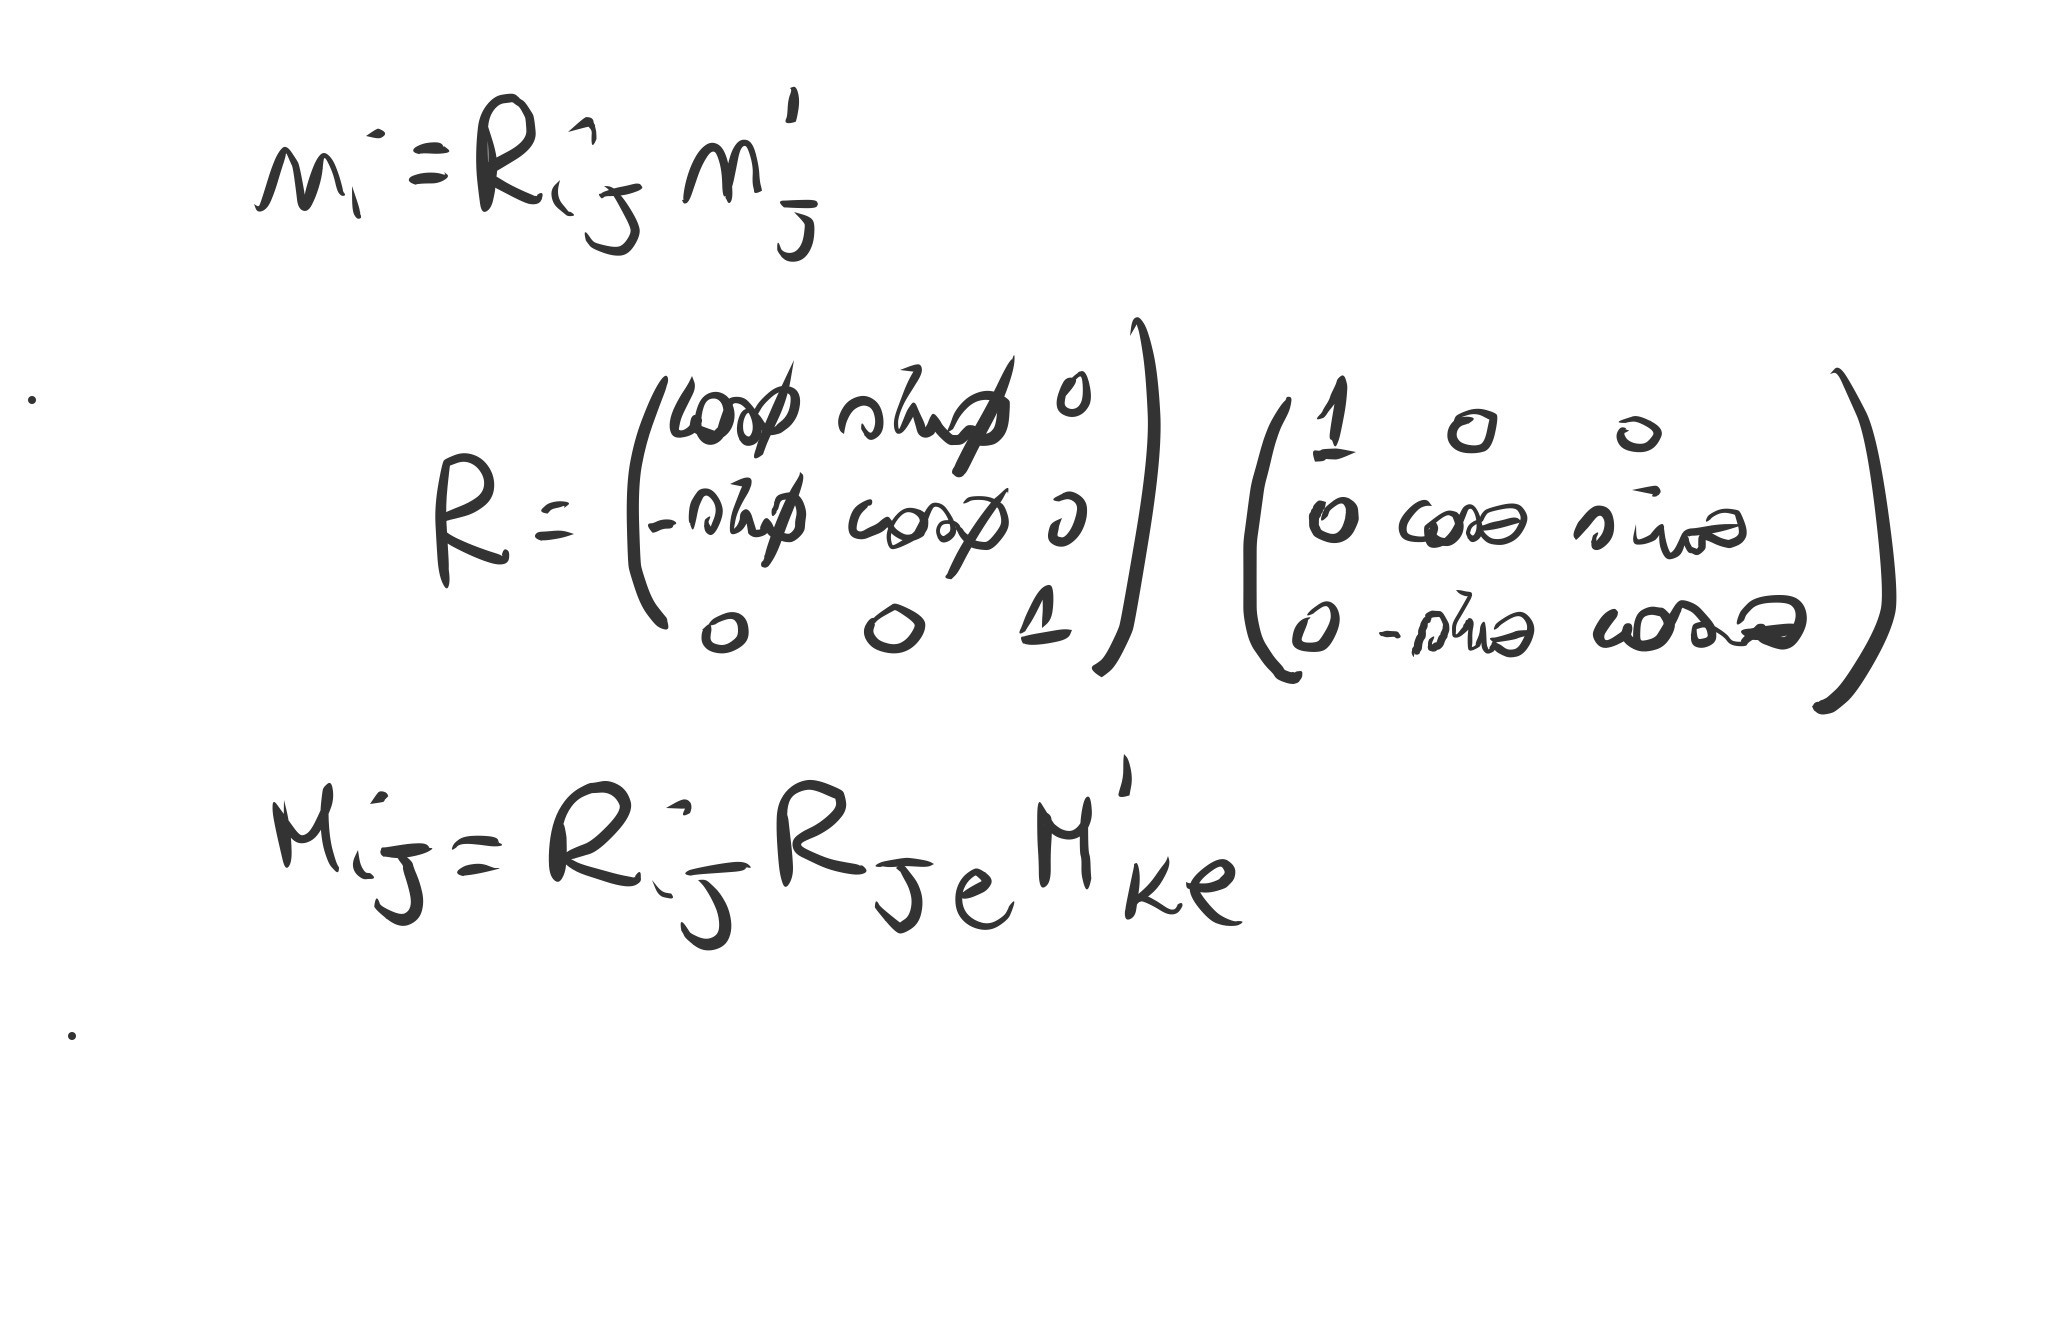 n_i = R_{ij} n'_j
R = \begin{pmatrix} \cos\phi & \sin\phi & 0 \\ -\sin\phi & \cos\phi & 0 \\ 0 & 0 & 1 \end{pmatrix} \begin{pmatrix} 1 & 0 & 0 \\ 0 & \cos\theta & \sin\theta \\ 0 & -\sin\theta & \cos\theta \end{pmatrix}
M_{ij} = R_{ij} R_{je} M'_{ke}